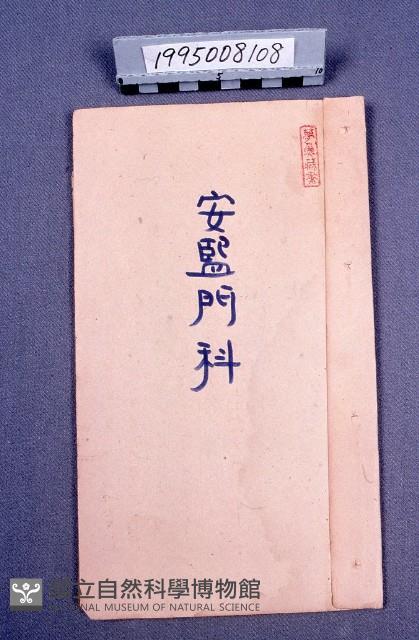 1995008108
5
10
安監門科
國立自然科學博物館
NATIONAL MUSEUM OF NATURAL SCIENCE